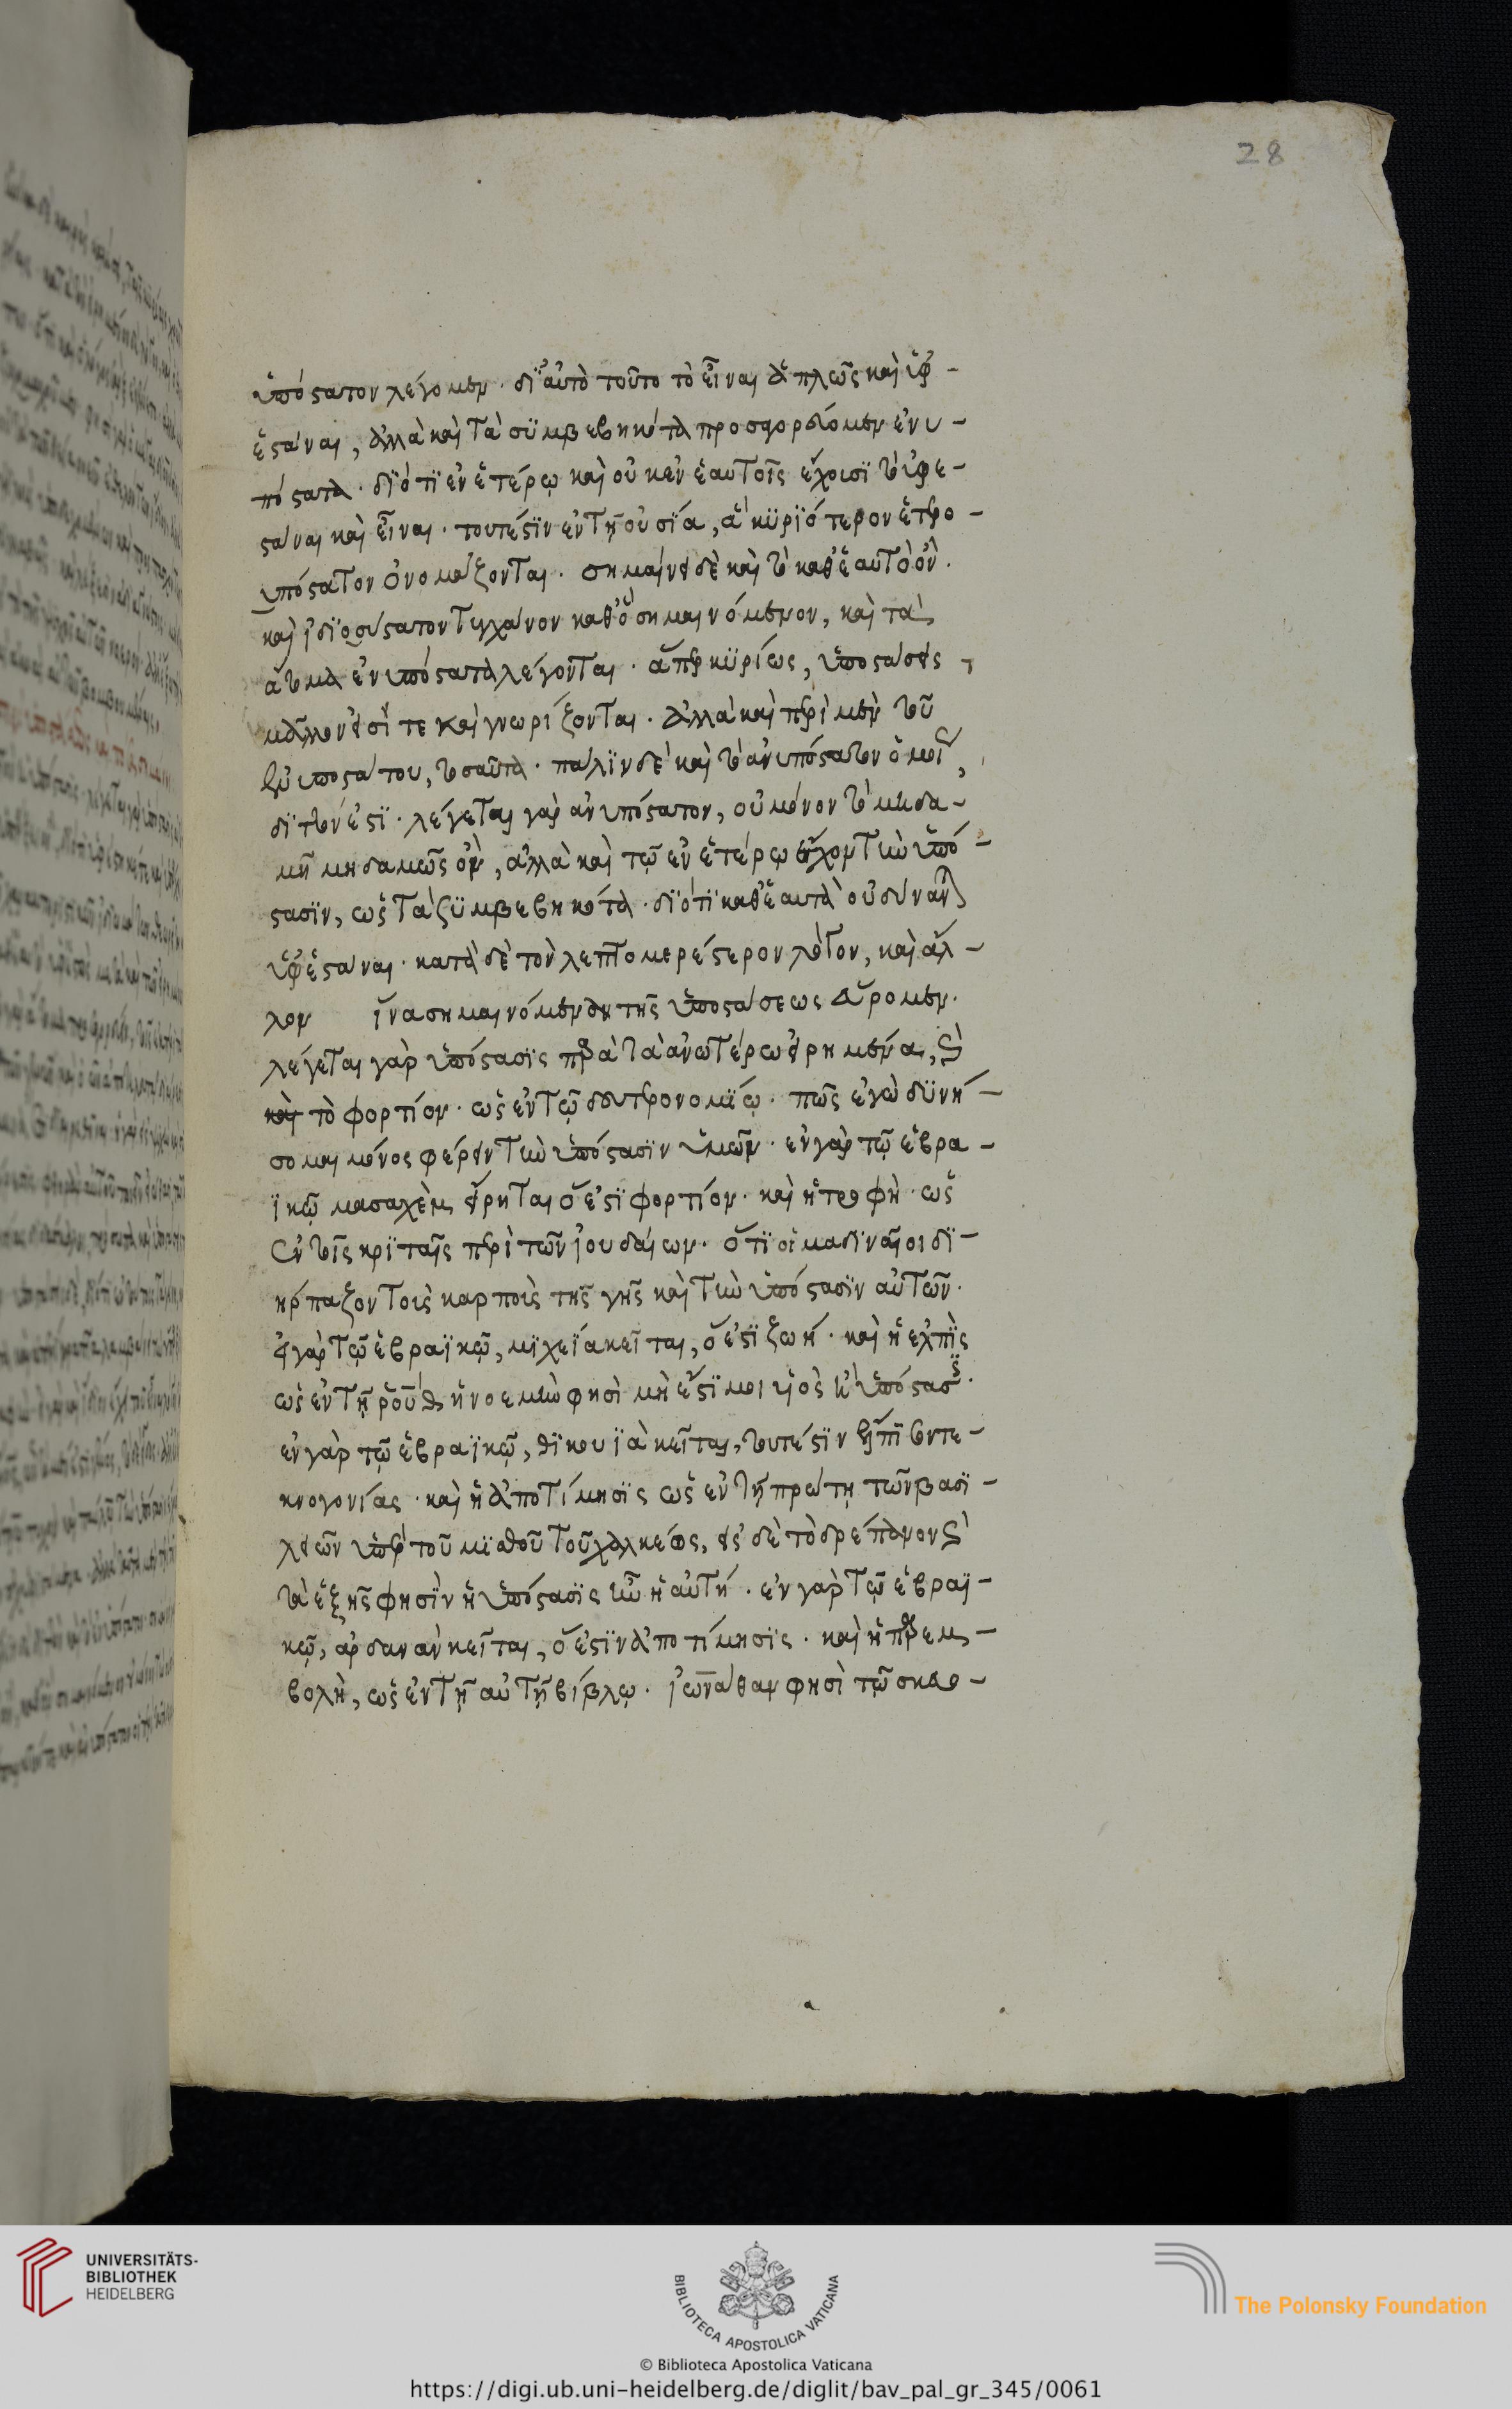 28
ὑπόστατον λέγομεν · δι' αὐτὸ τοῦτο τὸ εἶναι ἁπλῶς καὶ ὑφ-
εστάναι, ἀλλὰ καὶ τὰ συμβεβηκότα προσαγορεύομεν ἐνυ-
πόστατα · διότι ἐν ἑτέρῳ καὶ οὐκ ἐν ἑαυτοῖς ἔχουσι τὸ ὑφε-
στάναι καὶ εἶναι · τουτέστιν ἐν τῇ οὐσίᾳ, ἃ κυριότερον ἑτερο-
υπόστατον ὀνομάζονται · σημαίνει δὲ καὶ τὸ καθ' ἑαυτὸ ὂν ·
καὶ ἰδιοσύστατον τυγχάνον καθ' ὃ σημαινόμενον, καὶ τὰ
ἄτομα ἐνυπόστατα λέγονται · ἅπερ κυρίως, ὑποστάσεις
μᾶλλον εἰσί τε καὶ γνωρίζονται · ἀλλὰ καὶ περὶ μὲν τοῦ
ἐνυποστάτου, τοσαῦτα · πάλιν δὲ καὶ τὸ ἀνυπόστατον ὁμοί,
διττόν ἐστι · λέγεται γὰρ ἀνυπόστατον, οὐ μόνον τὸ μηδα-
μῆ μηδαμῶς ὂν, ἀλλὰ καὶ τῷ ἐν ἑτέρῳ ἔχον τὴν ὑπό-
στασιν, ὡς τὰ ξυμβεβηκότα · διότι καθ' ἑαυτὰ οὐ δύναν
ὑφεστάναι · κατὰ δὲ τὸν λεπτομερέστερον λόγον, καὶ ἄλ-
λον ἵνα σημαινόμενον τῆς ὑποστάσεως εὕρομεν ·
λέγεται γὰρ ὑπόστασις παρὰ τὰ ἀνωτέρω εἰρημένα, καὶ
καὶ τὸ φορτίον · ὡς ἐν τῷ δευτερονομίῳ · πῶς ἐγὼ δυνή-
σομαι μόνος φέρειν τὴν ὑπόστασιν ὑμῶν · ἐν γὰρ τῷ ἑβρα-
ϊκῷ μασαχὲμ εἴρηται ὅ ἐστι φορτίον · καὶ ἡ τροφὴ · ὡς
ἐν τοῖς κριταῖς περὶ τῶν ἰουδαίων · ὅτι οἱ μαδιναῖοι δι-
ήρπαζον τοὺς καρποὺς τῆς γῆς καὶ τὴν ὑπόστασιν αὐτῶν ·
ἐν γὰρ τῷ ἑβραϊκῷ, μιχεία κεῖται, ὅ ἐστι ζωή · καὶ ἡ ἐλπὶς
ὡς ἐν τῇ ῥοὺθ ἡ νοεμὴν φησὶ μὴ ἔστι μοι υἱὸς καὶ ὑπόστασις ·
ἐν γὰρ τῷ ἑβραϊκῷ, θικουϊὰ κεῖται, τουτέστιν ἐλπὶς τε-
κνογονίας · καὶ ἡ ἀποτίμησις ὡς ἐν τῇ πρώτῃ τῶν βασι-
λειῶν ὑπὲρ τοῦ μισθοῦ τοῦ χαλκέως, εἰς δὲ τὸ δρέπανον καὶ
τὰ ἑξῆς φησὶν ἡ ὑπόστασις ἦν ἡ αὐτή · ἐν γὰρ τῷ ἑβραϊ-
κῷ, ἀρδανὰν κεῖται, ὅ ἐστιν ἀποτίμησις · καὶ ἡ παρεμ-
βολὴ, ὡς ἐν τῇ αὐτῇ βίβλῳ · ἰωνάθαν φησὶ τῷ σκευο-
UNIVERSITÄTS-
BIBLIOTHEK
HEIDELBERG
BIBLIOTECA APOSTOLICA VATICANA
The Polonsky Foundation
© Biblioteca Apostolica Vaticana
https://digi.ub.uni-heidelberg.de/diglit/bav_pal_gr_345/0061